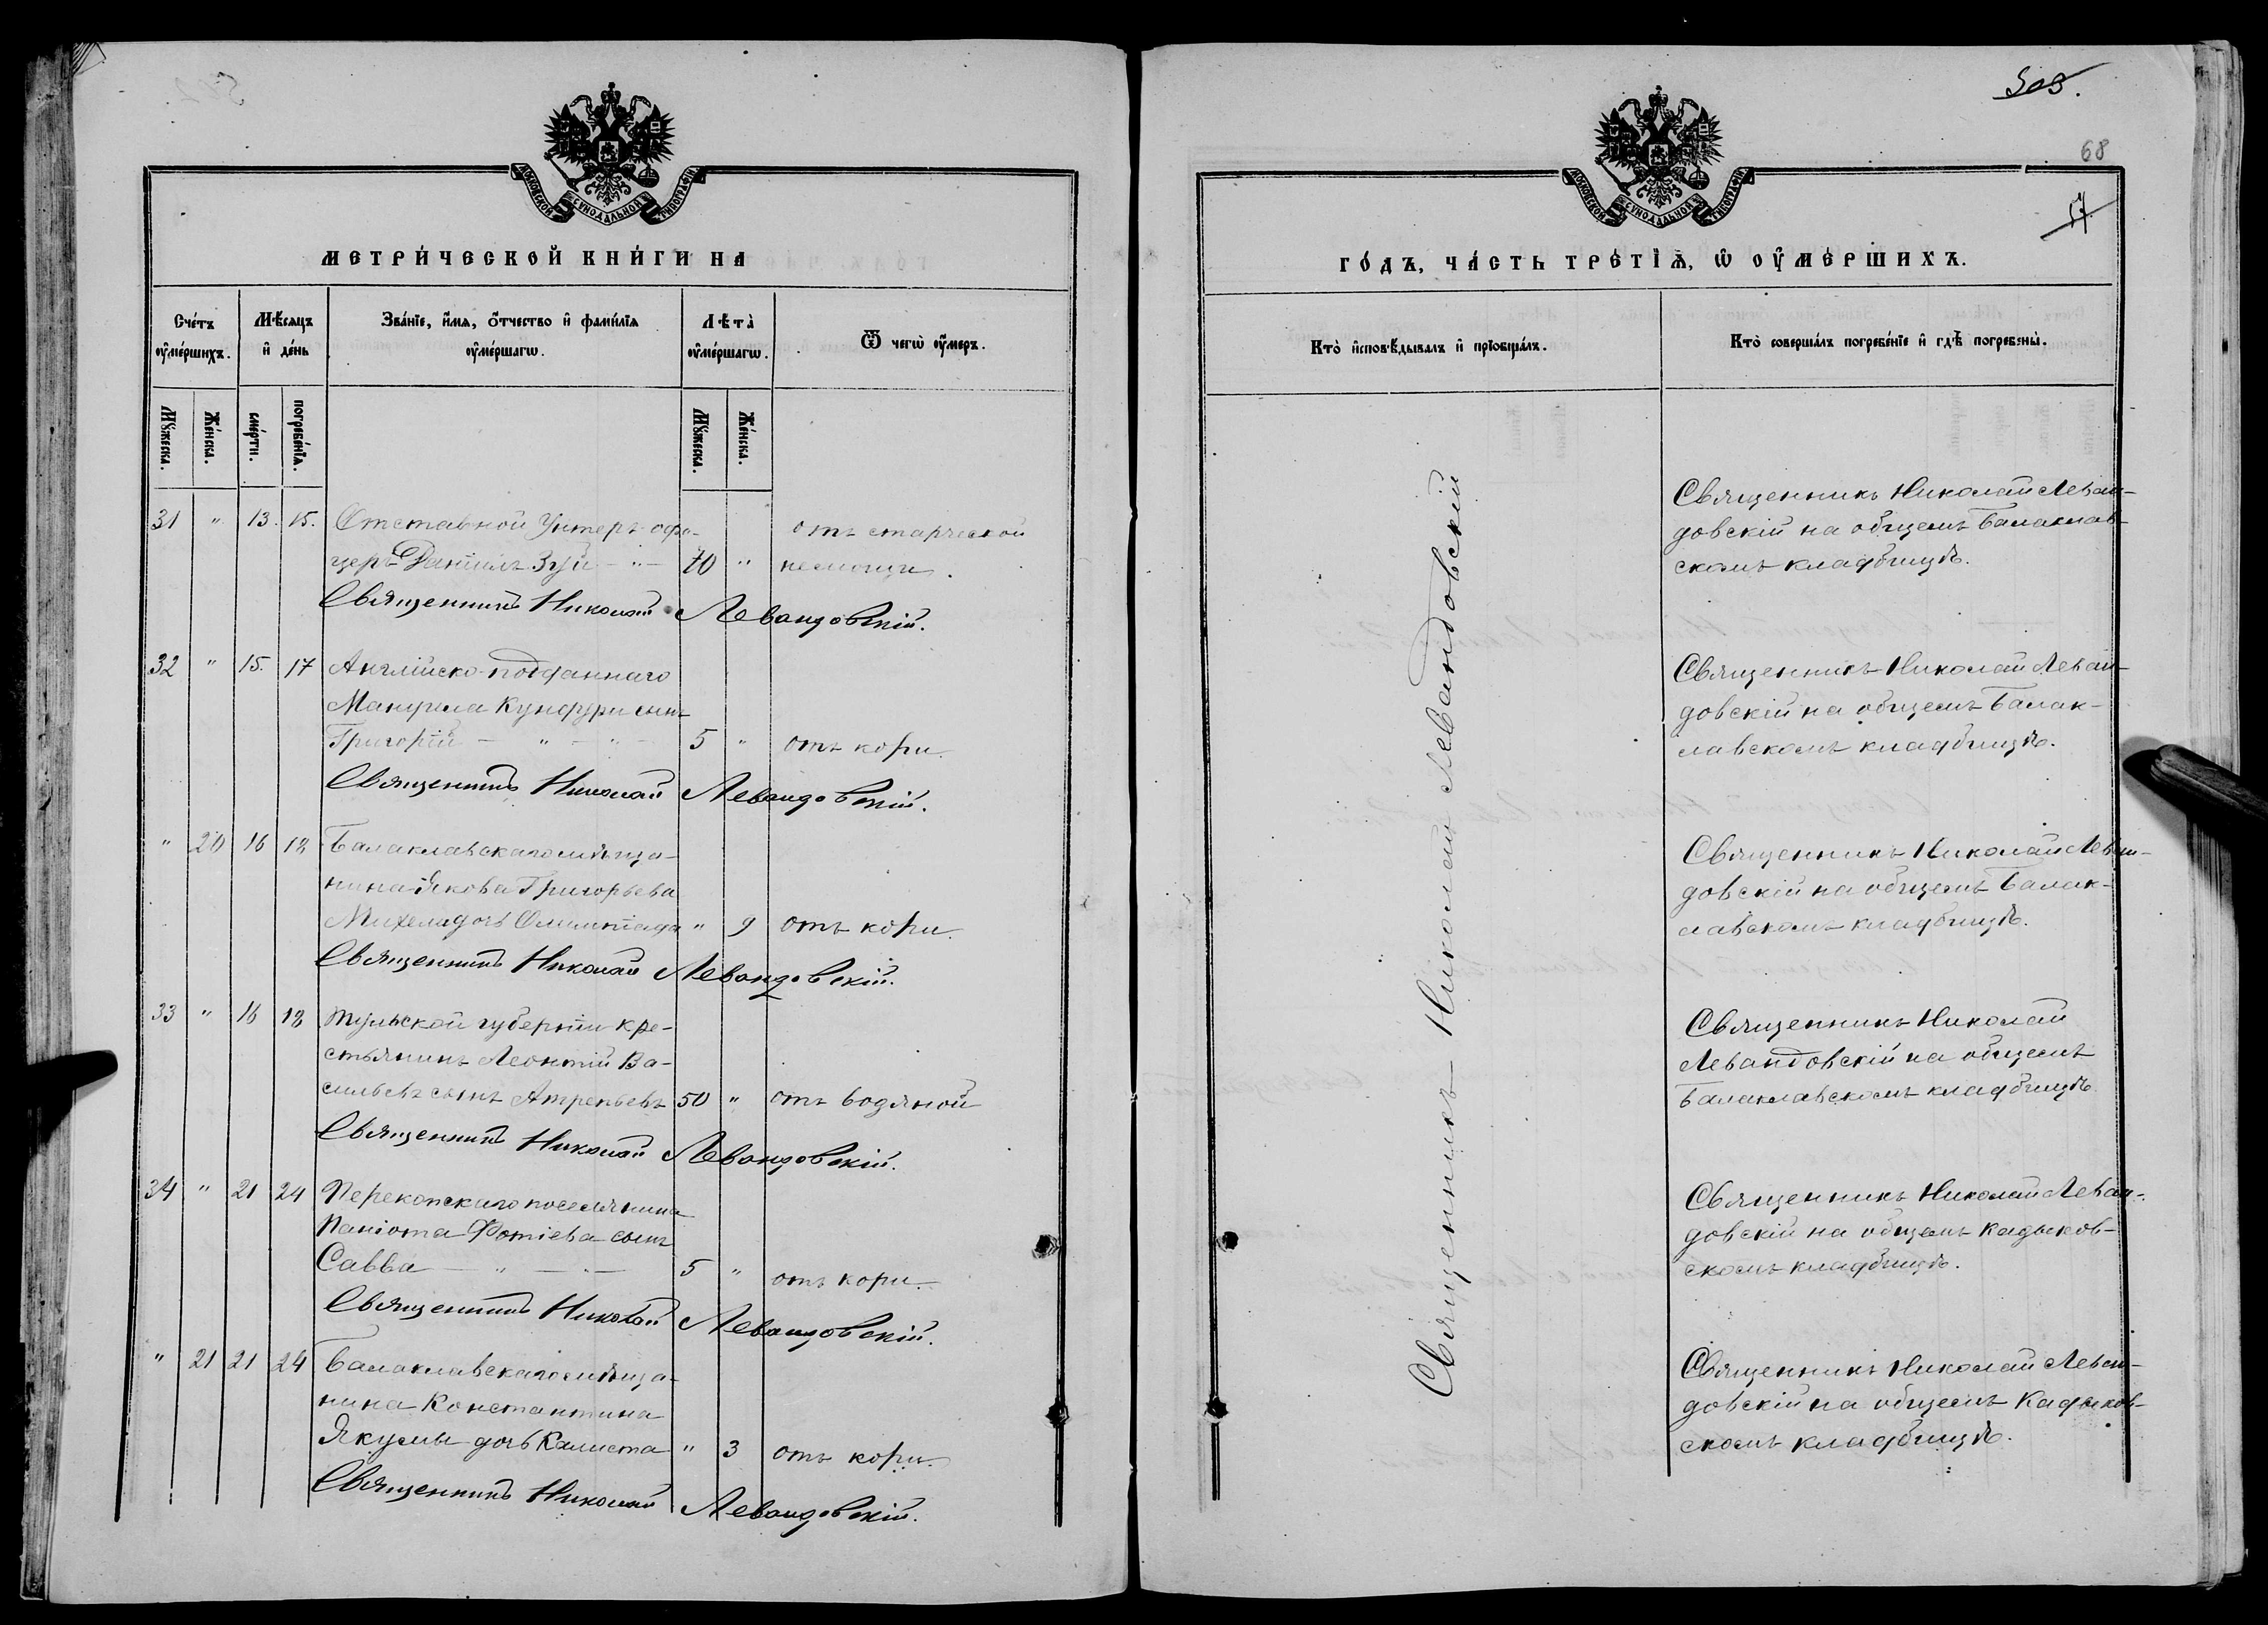 303.
68
17
МОСКОВСКОЙ СѴНОДАЛЬНОЙ ТИПОГРАФІИ
МЕТРИ́ЧЕСКОЙ КНИ́ГИ НА
Сче́тъ ᲂу҆ме́ршихъ.
Мѣ́сяцъ и҆ де́нь
Зва́нїе, и҆́мѧ, ѻ҆́тчество и҆ фами́лїѧ ᲂу҆ме́ршагѡ.
Лѣ̀та̀ ᲂу҆ме́ршагѡ.
Ѿ чегѡ̀ ᲂу҆́меръ.
Мꙋ́жеска.
Же́нска.
сме́рти.
погребе́нїѧ.
Мꙋ́жеска.
Же́нска.
31 " 13. 15. Отставной Унтеръ-офи- отъ старческой
церъ Даніилъ Зуй - " - 70 " немощи.
Священникъ Николай Левандовскій.
32 " 15. 17 Англійско-подданнаго
Мануила Кундури сынъ
Григорій - " - " - 5 " отъ кори.
Священникъ Николай Левандовскій.
" 20 16 18 Балаклавскаго мѣща-
нина Якова Григорьева
Михела дочь Олимпіада " 9 отъ кори.
Священникъ Николай Левандовскій.
33 " 16 18 Тульской губерніи кре-
стьянинъ Леонтій Ва-
сильевъ сынъ 50 " отъ водяной
Священникъ Николай Левандовскій.
34 " 21 24 Перекопскаго поселянина
Паніота Фотіева сынъ
Савва - " - " - 5 " отъ кори.
Священникъ Николай Левандовскій.
" 21 21 24 Балаклавскаго мѣща-
нина Константина
Якумы дочь Калиста " 3 отъ кори.
Священникъ Николай Левандовскій.
МОСКОВСКОЙ СѴНОДАЛЬНОЙ ТИПОГРАФІИ
ГО́ДЪ, ЧА́СТЬ ТРЕ́ТЇѦ, Ѡ҆ ОУ҆МЕ́РШИХЪ.
Кто̀ и҆сповѣ́дывалъ и҆ прїобща́лъ.
Кто̀ соверша́лъ погребе́нїе и҆ гдѣ̀ погребены̀.
Священникъ Николай Левандовскій
Священникъ Николай Леван-
довскій на общемъ Балаклав-
скомъ кладбищѣ.
Священникъ Николай Леван-
довскій на общемъ Балак-
лавскомъ кладбищѣ.
Священникъ Николай Леван-
довскій на общемъ Балак-
лавскомъ кладбищѣ.
Священникъ Николай
Левандовскій на общемъ
Балаклавскомъ кладбищѣ
Священникъ Николай Леван-
довскій на общемъ Кадыков-
скомъ кладбищѣ.
Священникъ Николай Леван-
довскій на общемъ Кадыков-
скомъ кладбищѣ.